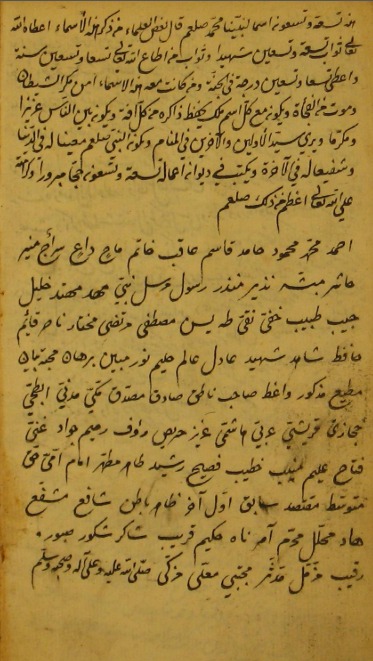 هذه تسعة وتسعون اسما لنبينا محمد صلعم قال بعض العلماء من ذكر هذا الاسماء اعطاه الله
تعالى ثواب تسعة وتسعين شهيدا وثواب من اطاع الله تعالى تسعا وتسعين سنة
واعطى تسعا وتسعين درجة في الجنة ومن كانت معه هذا الاسماء امن من مكر الشيطان
وموت الفجأة ويكون مع كل اسم ملك يحفظ ذاكره من كل آفة ويكون بين الناس عزيزا
ومكرما ويرى سيد الاولين والآخرين في المنام ويكون النبي صلعم معينا له في الدنيا
وشفيعا له في الآخرة ويكتب في ديوان اعماله تسعة وتسعون حجا مبرورا وكرامة
على الله تعالى اعظم من ذلك صلعم
احمد محمد محمود حامد قاسم عاقب خاتم ماح داع سراج منير
حاشر مبشر نذير منذر رسول مرسل نبي مهد مهتد خليل
حبيب طبيب خفي نقي طه يس مصطفى مرتضى مختار ناصر قائم
حافظ شاهد شهيد عادل عالم حليم نور مبين برهان حجة بيان
مطيع مذكور واعظ صاحب ناطق صادق مصدق مكي مدني ابطحي
حجازي قريشي عربي هاشمي عزيز حريص رؤف رحيم جواد غني
فتاح عليم منيب خطيب فصيح رشيد طاهر مطهر امام امي حق
متوسط مقتصد سابق اول آخر ظاهر باطن شافع مشفع
هاد محلل محرم آمر ناه حكيم قريب شاكر شكور صبور
رقيب مزمل مدثر مجتبى معلى مزكى صلى الله عليه وعلى آله وصحبه وسلم